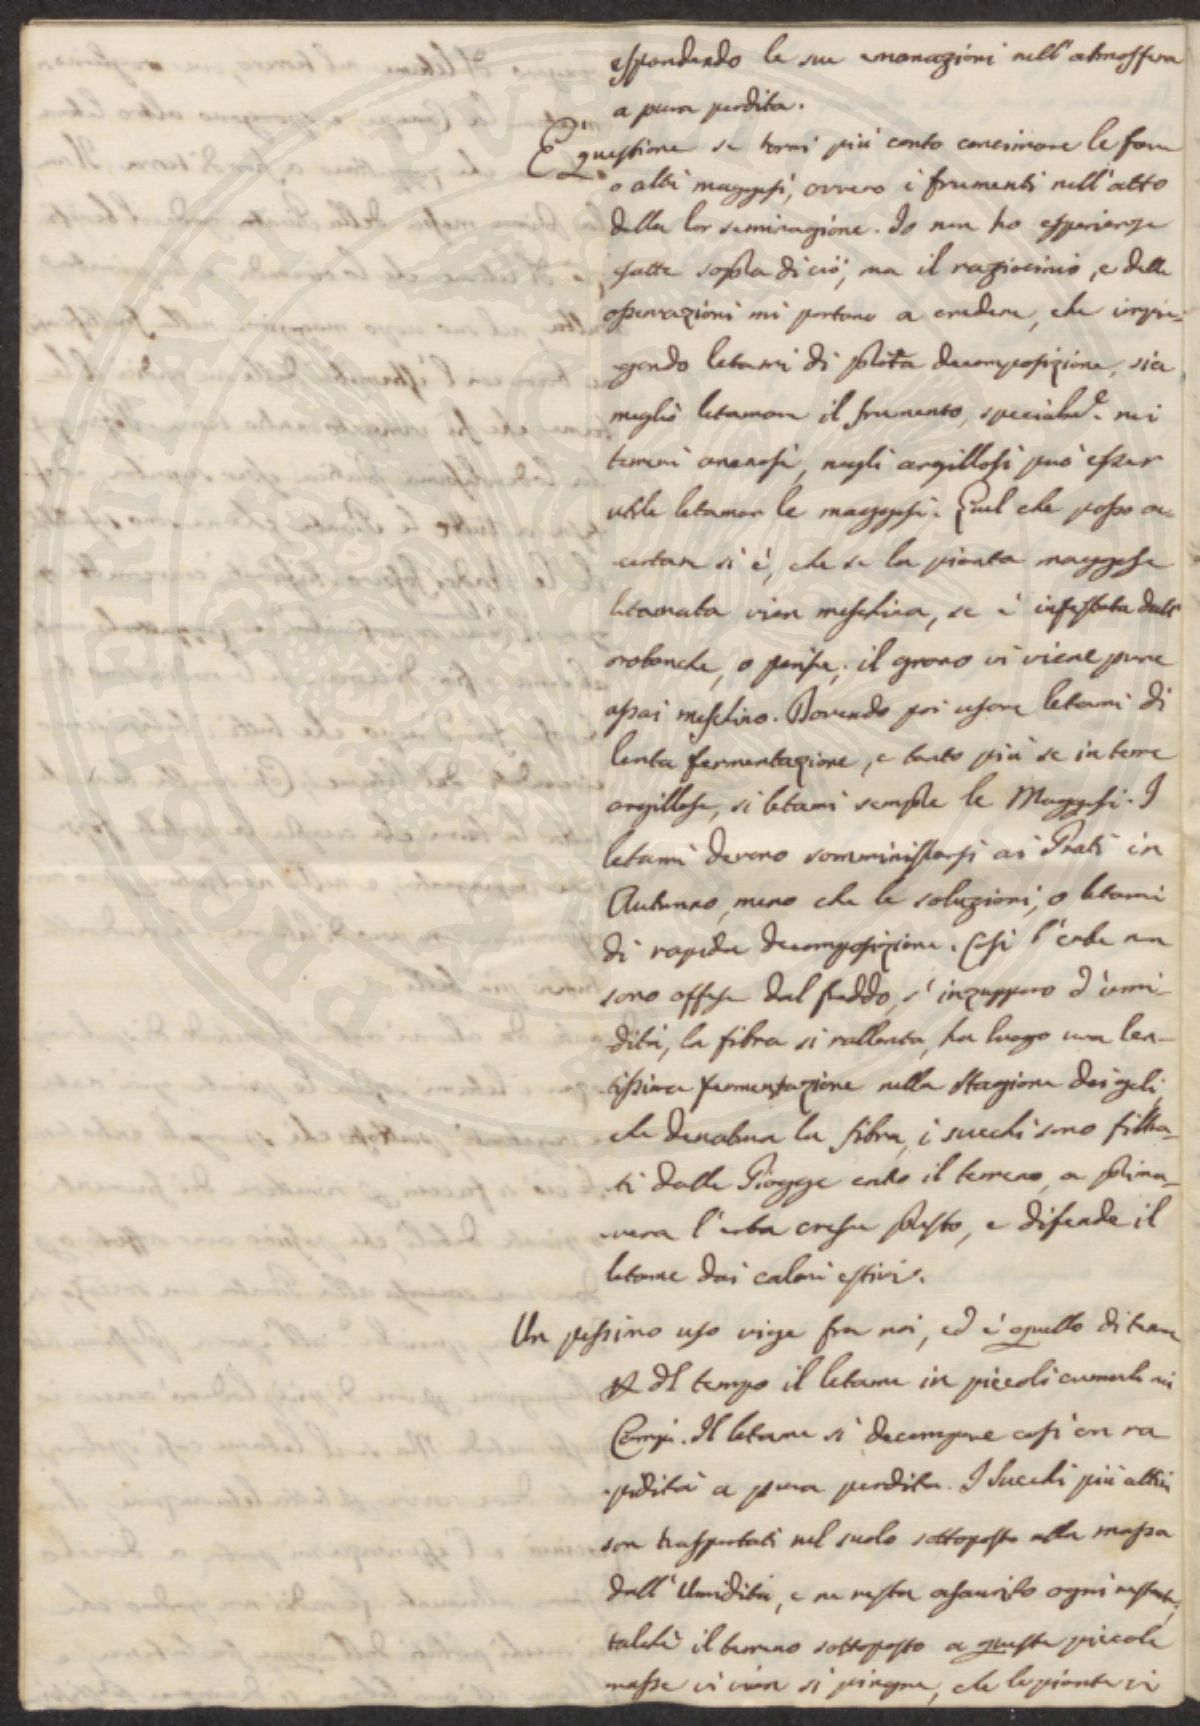 espandendo le sue emanazioni nell'atmosfera
a pura perdita.
È questione se torni più conto concimare le fave
o altri maggesi, ovvero i frumenti nell'atto
della lor seminagione. Io non ho esperienze
fatte sopra di ciò, ma il raziocinio, e delle
osservazioni mi portano a credere, che impie-
gando letami di pronta decomposizione, sia
meglio letamare il frumento, specialm.e nei
terreni arenosi, negli argillosi può esser
utile letamar le maggesi. Quel che posso ac-
certare si è, che se la pianta maggese
letamata vien meschina, se è infestata dall'
orobanche, o perisce, il grano vi viene pure
assai meschino. Dovendo poi usare letami di
lenta fermentazione, e tanto più se in terre
argillose, si letami sempre le Maggesi. I
letami devono somministrarsi ai Prati in
Autunno, meno che le soluzioni, o letami
di rapida decomposizione. Così l'erbe non
sono offese dal freddo, s'inzuppano d'umi-
dità, la fibra si rallenta, ha luogo una len-
tissima fermentazione nella Stagione dei geli,
che denatura la fibra, i succhi sono filtra-
ti dalle Piogge entro il terreno, a prima-
vera l'erba cresce presto, e difende il
letame dai calori estivi.
Un pessimo uso vige fra noi, ed è quello di tener
p del tempo il letame in piccoli cumuli nei
Campi. Il letame si decompone così con ra
pidità a pura perdita. I Succhi più attivi
son trasportati nel suolo sottoposto alla massa
dall'Umidità, e ne resta esaurito ogni restante,
talchè il terreno sottoposto a queste piccole
masse vi vien sì pingue, che le piante vi
PUBLICI
PERILLATI